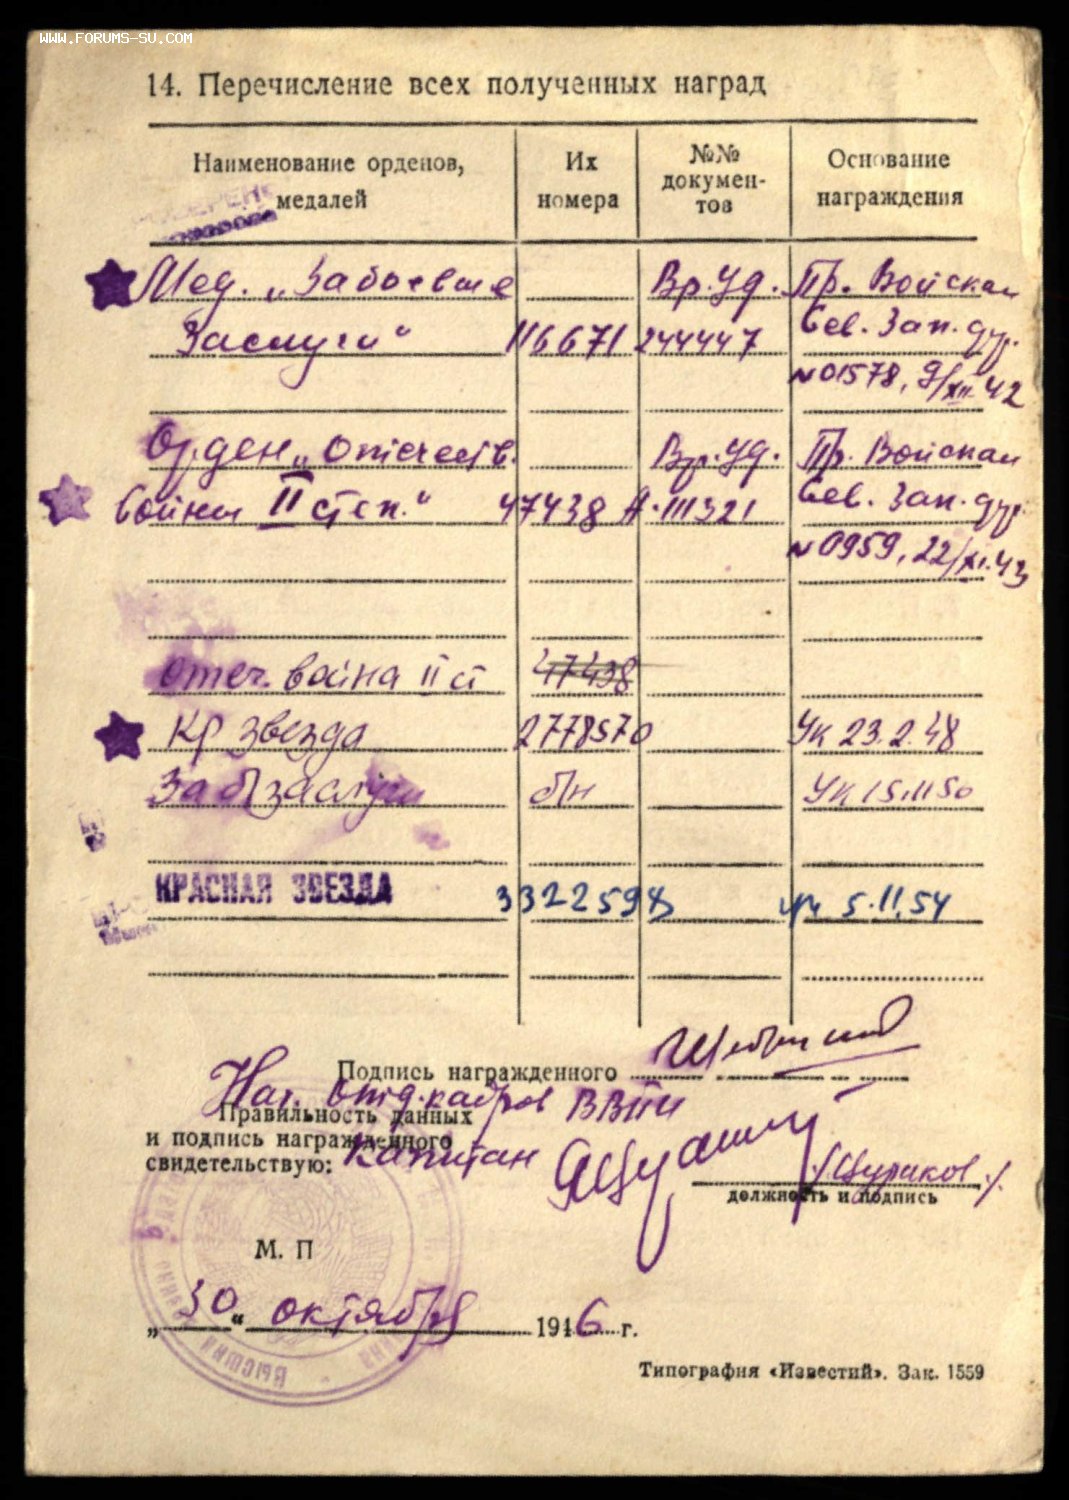 WWW.FORUMS-SU.COM
14. Перечисление всех полученных наград
Наименование орденов, медалей
Их номера
№№ докумен-тов
Основание награждения
Мед. „За боевые Вр. Уд. Пр. Войскам
Заслуги“ 116671 244447 Сев. Зап. фр.
№01578, 9/XII-42
Орден „Отечеств. Вр. Уд. Пр. Войскам
Войны II степ.“ 47438 А-111321 Сев. Зап. фр.
№0959, 22/XI.43
Отеч. война II ст 47438
Кр звезда 2778570 Ук 23.2.48
За б/заслуги б/н Ук 15.11 50
КРАСНАЯ ЗВЕЗДА 3322594 ук 5.11.54
Подпись награжденного
Нач. отд. кадров ВВИ
Правильность данных
и подпись награжденного
свидетельствую: Капитан
/Цураков/.
должность и подпись
М. П
„30“ октября 1946 г.
Типография «Известий». Зак. 1559